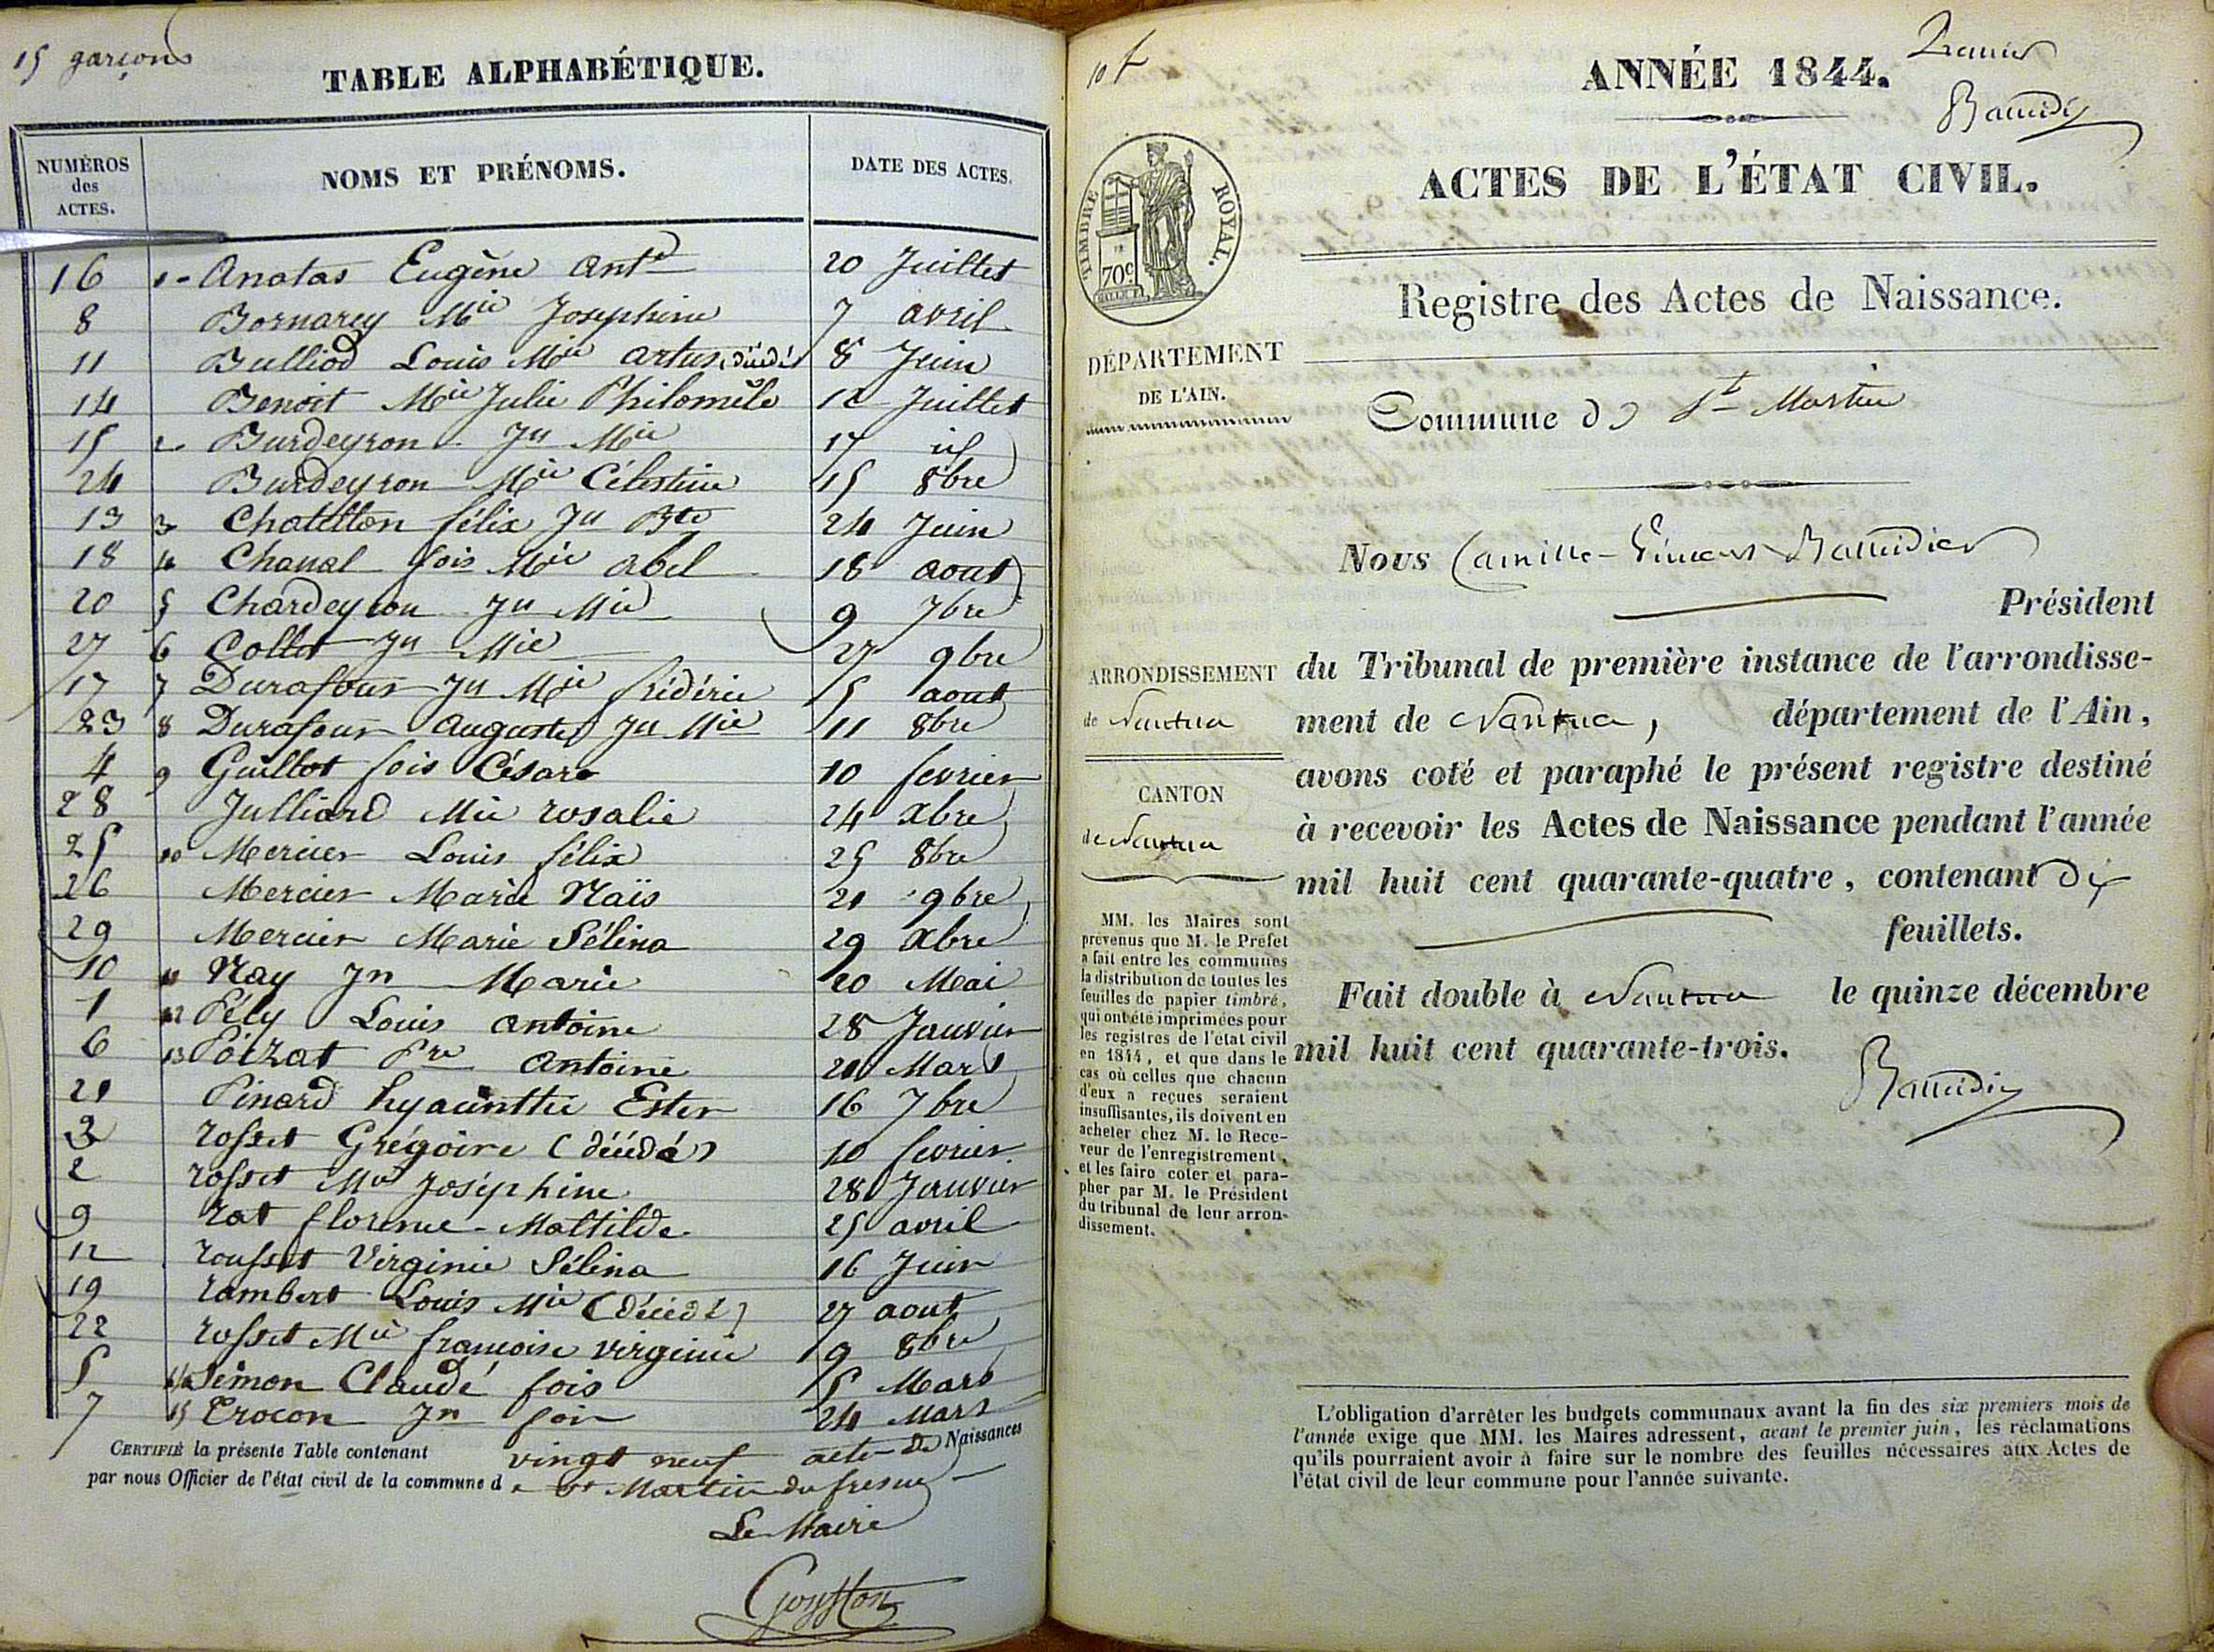 15 garçons
TABLE ALPHABÉTIQUE.
NUMÉROS
des
ACTES.
NOMS ET PRÉNOMS.
DATE DES ACTES.
16 1- Anatas Eugène Ant.e 20 Juillet
8 Bornarey Mie Josephine 7 avril
11 Bulliod Louis Mie artus (décédé) 8 Juin
14 Benoit Mie Julie Philomèle 12 Juillet
15 2 Burdeyron Jn Mie 17 id
24 Burdeyron Mie Célestine 15 8bre
13 3 Chatillon félix Jn Bte 24 Juin
18 4 Chanal fois Mie abel 18 aout
20 5 Chardeyron Jn Mie 9 7bre
27 6 Collet Jn Mie 27 9bre
17 7 Durafour Jn Mie frédéric 5 aout
23 8 Durafour Auguste Jn Mie 11 8bre
4 9 Guillot fois César 10 fevrier
28 Julliard Mie rosalie 24 Xbre
25 10 Mercier Louis félix 25 8bre
26 Mercier Marie Naïs 21 9bre
29 Mercier Marie Sélina 29 Xbre
10 11 Nay Jn Marie 20 Mai
1 12 Pély Louis Antoine 28 Janvier
6 13 Poizat Pre Antoine 21 Mars
21 Pinard hyacintthe Ester 16 7bre
3 rosset Grégoire (décédé) 10 fevrier
2 rosset Mie Joséphine 28 Janvier
9 rat florence Mattilde 25 avril
12 rousset Virginie Sélina 16 Juin
19 rambert Louis Mie (décédé) 27 aout
22 rosset Mie françoise virginie 9 8bre
5 14 Simon Claude fois 5 Mars
7 15 Trocon Jn fois 24 Mars
CERTIFIÉ la présente Table contenant vingt neuf acte de Naissances
par nous Officier de l'état civil de la commune de St Martin du fresne
Le Maire
10 f
ANNÉE 1844.
ACTES DE L'ÉTAT CIVIL.
TIMBRE ROYAL.
70c
Registre des Actes de Naissance.
DÉPARTEMENT
DE L'AIN.
Commune de St Martin
Nous Camille Baudier
Président
ARRONDISSEMENT
de Nantua
du Tribunal de première instance de l'arrondisse-
ment de Nantua, département de l'Ain,
avons coté et paraphé le présent registre destiné
à recevoir les Actes de Naissance pendant l'année
mil huit cent quarante-quatre, contenant dix
feuillets.
CANTON
de Nantua
Fait double à Nantua le quinze décembre
mil huit cent quarante-trois.
MM. les Maires sont
prévenus que M. le Préfet
a fait entre les communes
la distribution de toutes les
feuilles de papier timbré,
qui ont été imprimées pour
les registres de l'état civil
en 1844, et que dans le
cas où celles que chacun
d'eux a reçues seraient
insuffisantes, ils doivent en
acheter chez M. le Rece-
veur de l'enregistrement,
et les faire coter et para-
pher par M. le Président
du tribunal de leur arron-
dissement.
L'obligation d'arrêter les budgets communaux avant la fin des six premiers mois de
l'année exige que MM. les Maires adressent, avant le premier juin, les réclamations
qu'ils pourraient avoir à faire sur le nombre des feuilles nécessaires aux Actes de
l'état civil de leur commune pour l'année suivante.